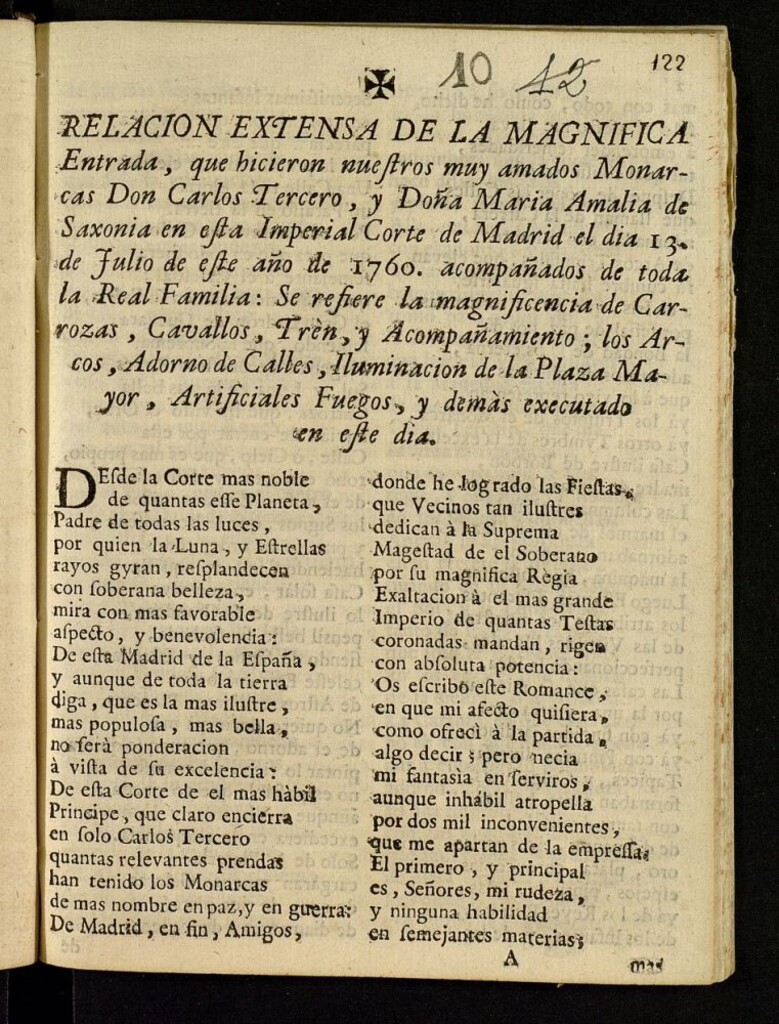 122
10 42
RELACION EXTENSA DE LA MAGNIFICA
Entrada, que hicieron nueſtros muy amados Monar-
cas Don Carlos Tercero, y Doña Maria Amalia de
Saxonia en eſta Imperial Corte de Madrid el dia 13.
de Julio de eſte año de 1760. acompañados de toda
la Real Familia: Se refiere la magnificencia de Car-
rozas, Cavallos, Trèn, y Acompañamiento; los Ar-
cos, Adorno de Calles, Iluminacion de la Plaza Ma-
yor, Artificiales Fuegos, y demàs executado
en eſte dia.
DEſde la Corte mas noble
de quantas eſſe Planeta,
Padre de todas las luces,
por quien la Luna, y Eſtrellas
rayos gyran, reſplandecen
con ſoberana belleza,
mira con mas favorable
aſpecto, y benevolencia:
De eſta Madrid de la Eſpaña,
y aunque de toda la tierra
diga, que es la mas iluſtre,
mas populoſa, mas bella,
no ſerà ponderacion
à viſta de ſu excelencia:
De eſta Corte de el mas hàbil
Principe, que claro encierra
en ſolo Carlos Tercero
quantas relevantes prendas
han tenido los Monarcas
de mas nombre en paz, y en guerra:
De Madrid, en fin, Amigos,
donde he logrado las Fieſtas,
que Vecinos tan iluſtres
dedican à la Suprema
Mageſtad de el Soberano
por ſu magnifica Règia
Exaltacion à el mas grande
Imperio de quantas Teſtas
coronadas mandan, rigen
con abſoluta potencia:
Os eſcribo eſte Romance,
en que mi afecto quiſiera,
como ofrecì à la partida,
algo decir; pero necia
mi fantasìa en ſerviros,
aunque inhábil atropella
por dos mil inconvenientes,
que me apartan de la empreſſa:
El primero, y principal
es, Señores, mi rudeza,
y ninguna habilidad
en ſemejantes materias;
A
mas